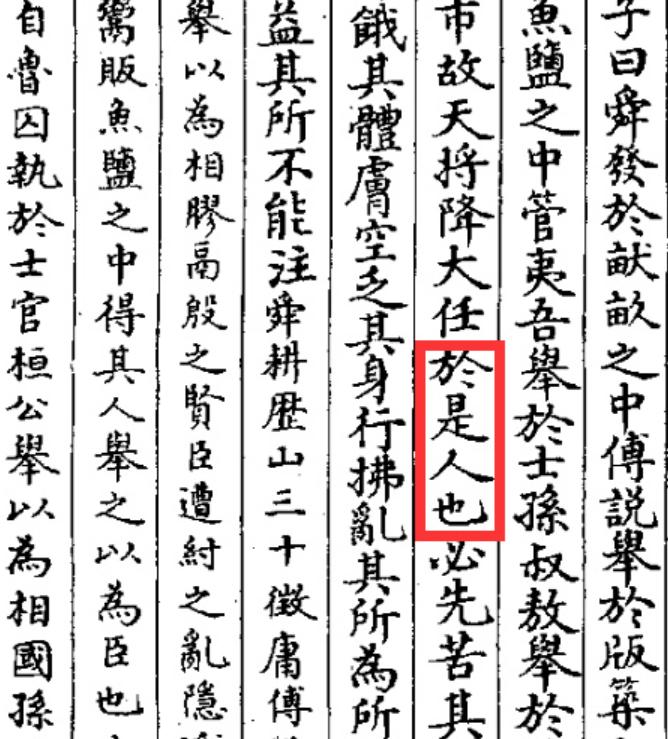 子曰舜發於畎畝之中傅説舉於版築
魚鹽之中管夷吾舉於士孫叔敖舉於
市故天將降大任於是人也必先苦其
餓其體膚空乏其身行拂亂其所為所
益其所不能注舜耕歴山三十徵庸傅
舉以為相膠鬲殷之賢臣遭紂之亂隱
鬻販魚鹽之中得其人舉之以為臣也
自魯囚執於士官桓公舉以為相國孫